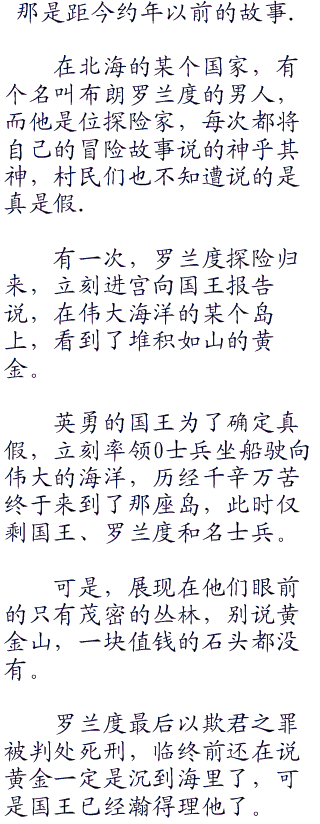 那是距今约年以前的故事.
在北海的某个国家，有
个名叫布朗罗兰度的男人，
而他是位探险家，每次都将
自己的冒险故事说的神乎其
神，村民们也不知遭说的是
真是假.
有一次，罗兰度探险归
来，立刻进宫向国王报告
说，在伟大海洋的某个岛
上，看到了堆积如山的黄
金。
英勇的国王为了确定真
假，立刻率领0士兵坐船驶向
伟大的海洋，历经千辛万苦
终于来到了那座岛，此时仅
剩国王、罗兰度和名士兵。
可是，展现在他们眼前
的只有茂密的丛林，别说黄
金山，一块值钱的石头都没
有。
罗兰度最后以欺君之罪
被判处死刑，临终前还在说
黄金一定是沉到海里了，可
是国王已经瀚得理他了。